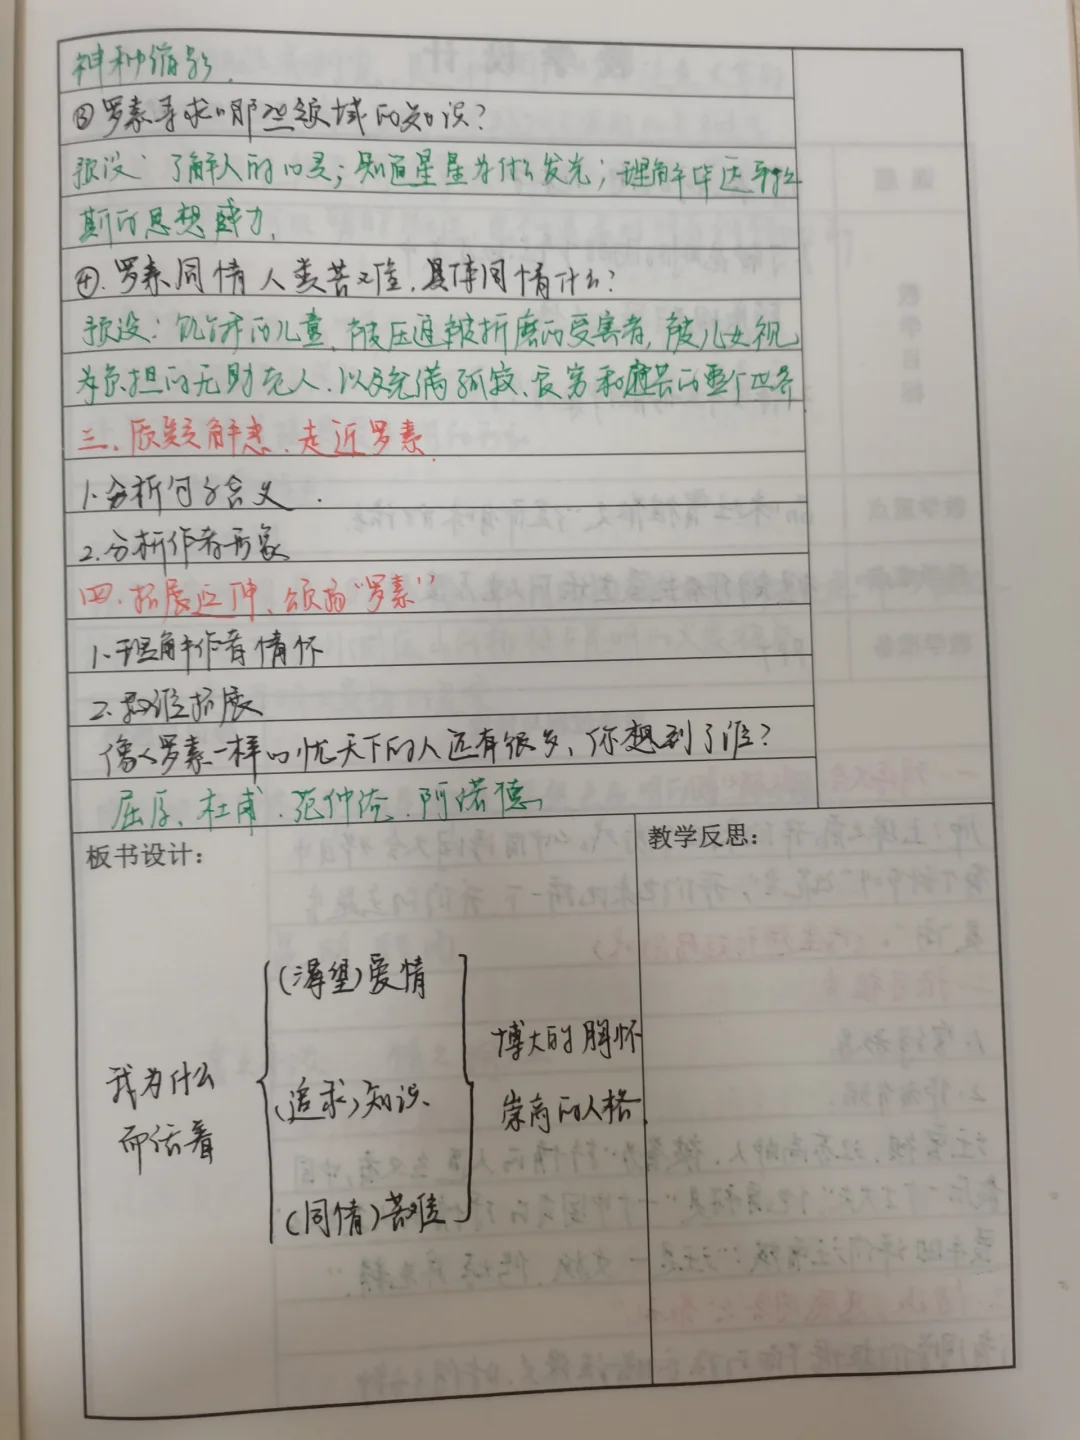 神种缩影.
③罗素寻求哪些领域的知识?
预设:了解人的心灵;知道星星为什么发光;理解毕达哥拉
斯的思想威力,
④.罗素同情人类苦难,具体同情什么?
预设:饥饿的儿童、被压迫被折磨的受害者,被儿女视
为负担的无助老人、以及充满孤寂、贫穷和痛苦的整个世界.
三、质疑解惑、走近罗素.
1.分析句子含义.
2.分析作者形象
四、拓展延伸、颂扬“罗素”
1.理解作者情怀
2.思维拓展
像罗素一样的忧天下的人还有很多,你想到了谁?
屈原、杜甫、范仲淹、阿诺德、
板书设计:
教学反思:
我为什么
而活着
(渴望)爱情
(追求)知识、
(同情)苦难
博大的胸怀
崇高的人格